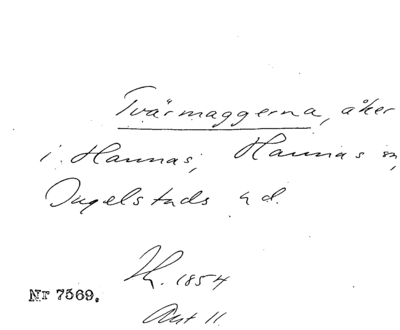 Tvärmaggerna, åker
i Hannas, Hannas sn,
Ingelstads hd.
1854
Nr 7569.
Akt 11